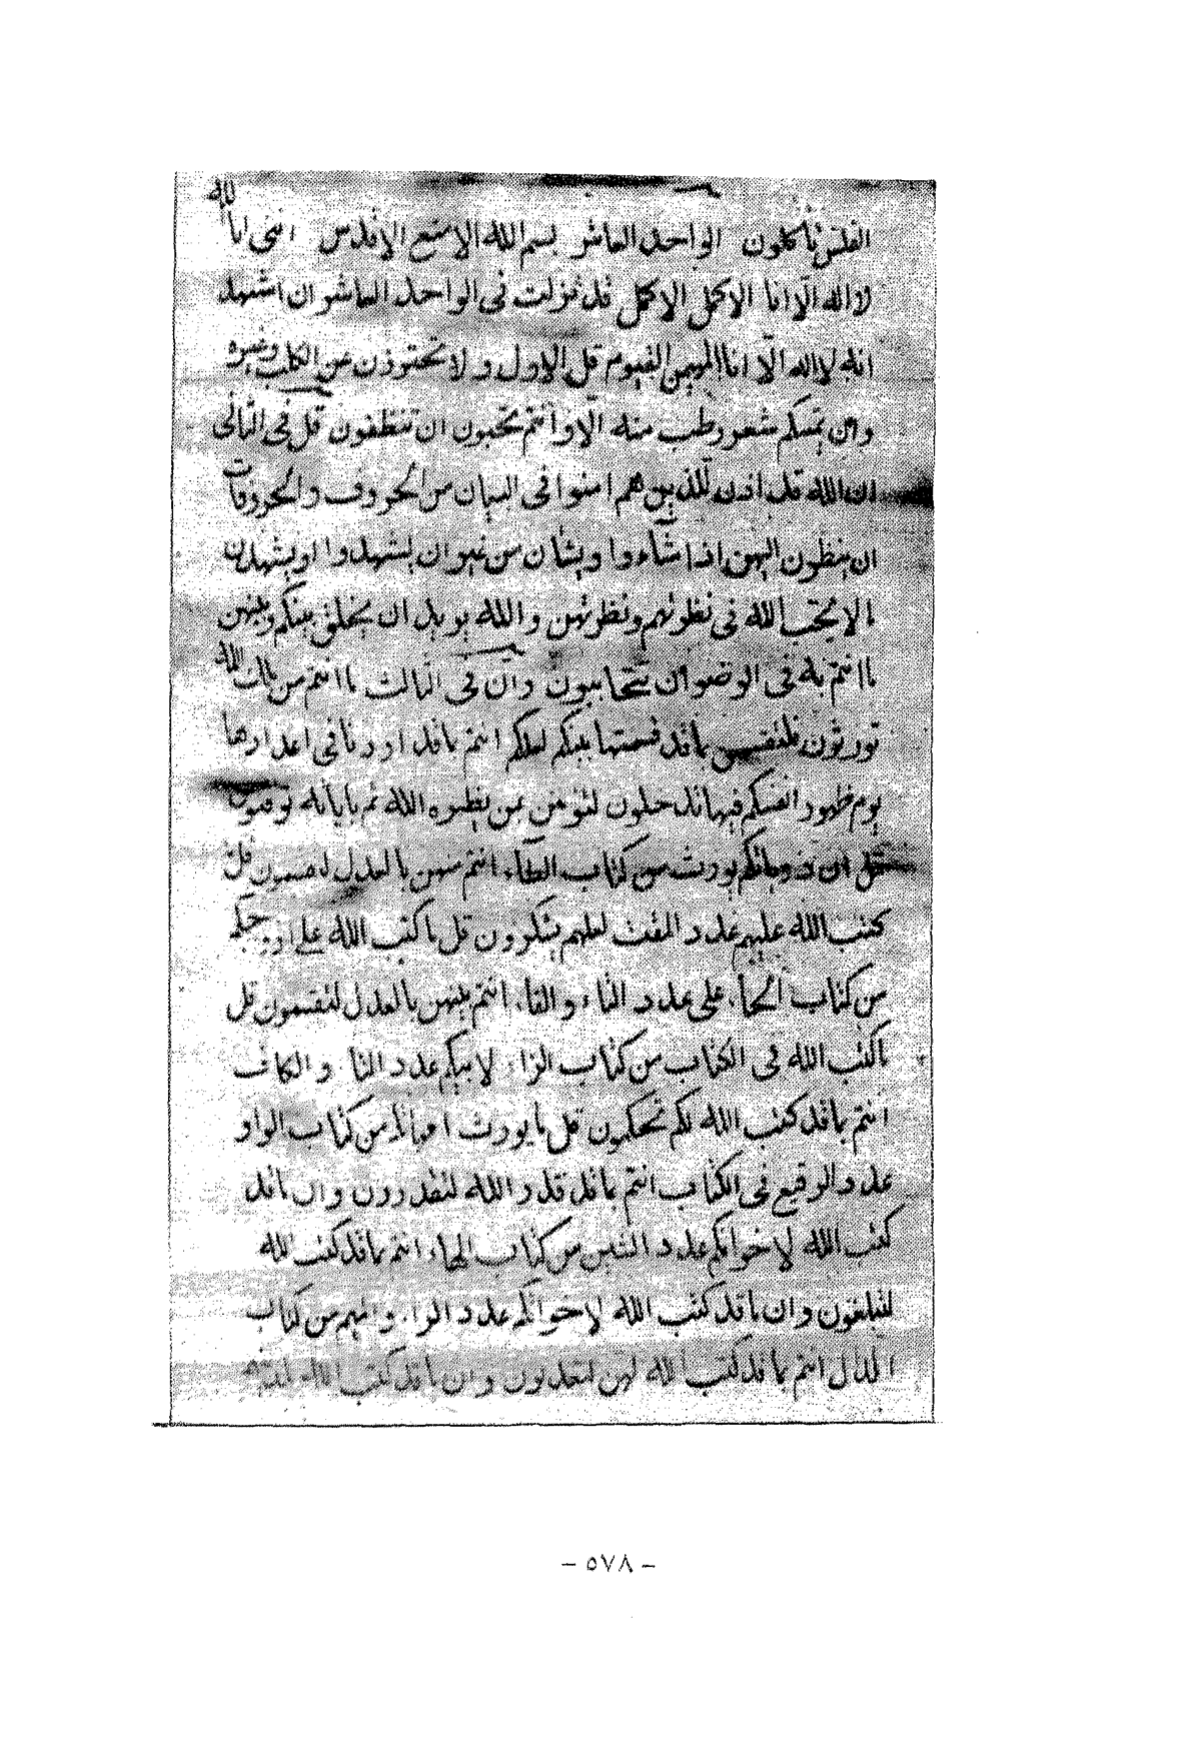 الفلس تأكلون الواحد العاشر بسم الله الامنع الاقدس اننى انا الله
لا اله الا انا الاكمل الاكمل قد نزلت فى الواحد العاشر ان اشهد
انه لا اله الا انا المهيمن القيوم قل الاول ولا تحترزن عن الكلب وغيره
وان يمسكم شعر رطب منه الا وانتم تحبون ان تنظفون قل فى الثانى
ان الله قد اذن للذين هم امنوا فى البيان من الحروف والحروفات
ان ينظرون اليهن اذا شاءوا ويشان من غير ان يشهدوا او يشهدن
مالا يحب الله فى نظرتهم ونظرتهن والله يريد ان يخلق بينكم وبينهن
ما انتم به فى الرضوان تتحابون وان فى الثالث ما انتم من ملك الله
تورثون فلتقسمن ما قد قسمتها بينكم لعلكم انتم ما قد اردنا فى اعدادها
يوم ظهور انفسكم فيها تدخلون لتؤمنن بمن يظهره الله ثم باياته توقنون
قل ان ذرياتكم يورث من كتاب الطاء انتم بينهن بالعدل قل
كتب الله عليهم عدد المقت لعلهم يشكرون قل ما كتب الله على ازوجكم
من كتاب الحاء على عدد التاء والفاء انتم بينهن بالعدل لتقسمون قل
ما كتب الله فى الكتاب من كتاب الزاء لابيكم عدد التاء والكاف
انتم ما قد كتب الله لكم تحكمون قل ما يورث امهاتكم من كتاب الواو
عدد الرفيع فى الكتاب انتم ما قد قدر الله لتقدرون وان ما قد
كتب الله لاخوانكم عدد الشين من كتاب الهاء انتم ما قد كتب الله
لتبلغون وان ما قد كتب الله لاخواتكم عدد الراء والميم من كتاب
الدال انتم ما قد كتب الله لهن لتعدلون وان ما قد كتب الله
- ٥٧٨ -